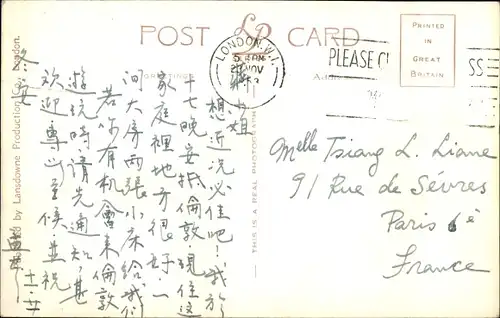 POST CARD
PRINTED
IN
GREAT
BRITAIN
LONDON.W.1.
NOV
PLEASE
SS
by Lansdowne Production Co., London.
THIS IS A REAL PHOTOGRAPH
小姐
想近況必佳吧!我於
十七晚安抵倫敦.現住這
家庭裡地方很好.一
间大房两張小床给我们
若你有机會来倫敦
遊玩時,请先通知,甚
欢迎 並祝
冬安
Melle Tsiang L. Liane
91 Rue de Sèvres
Paris 6è
France